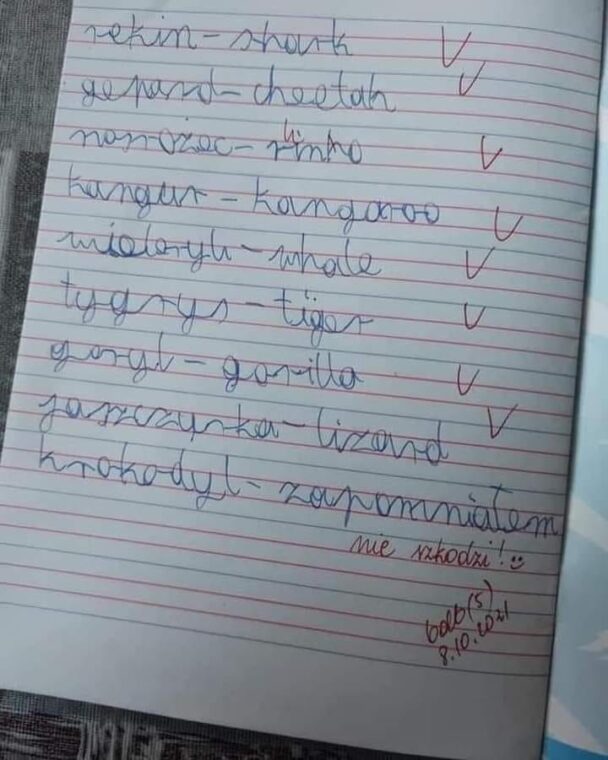 rekin - shark V
gepard - cheetah V
nosrożec - rinho V
hi
kangur - kangaroo V
wieloryb - whale V
tygrys - tiger V
goryl - gorilla V
jaszczyrka - lizard V
krokodyl - zapomniałem
nie szkodzi! ☺
bdb (5)
8.10.2021